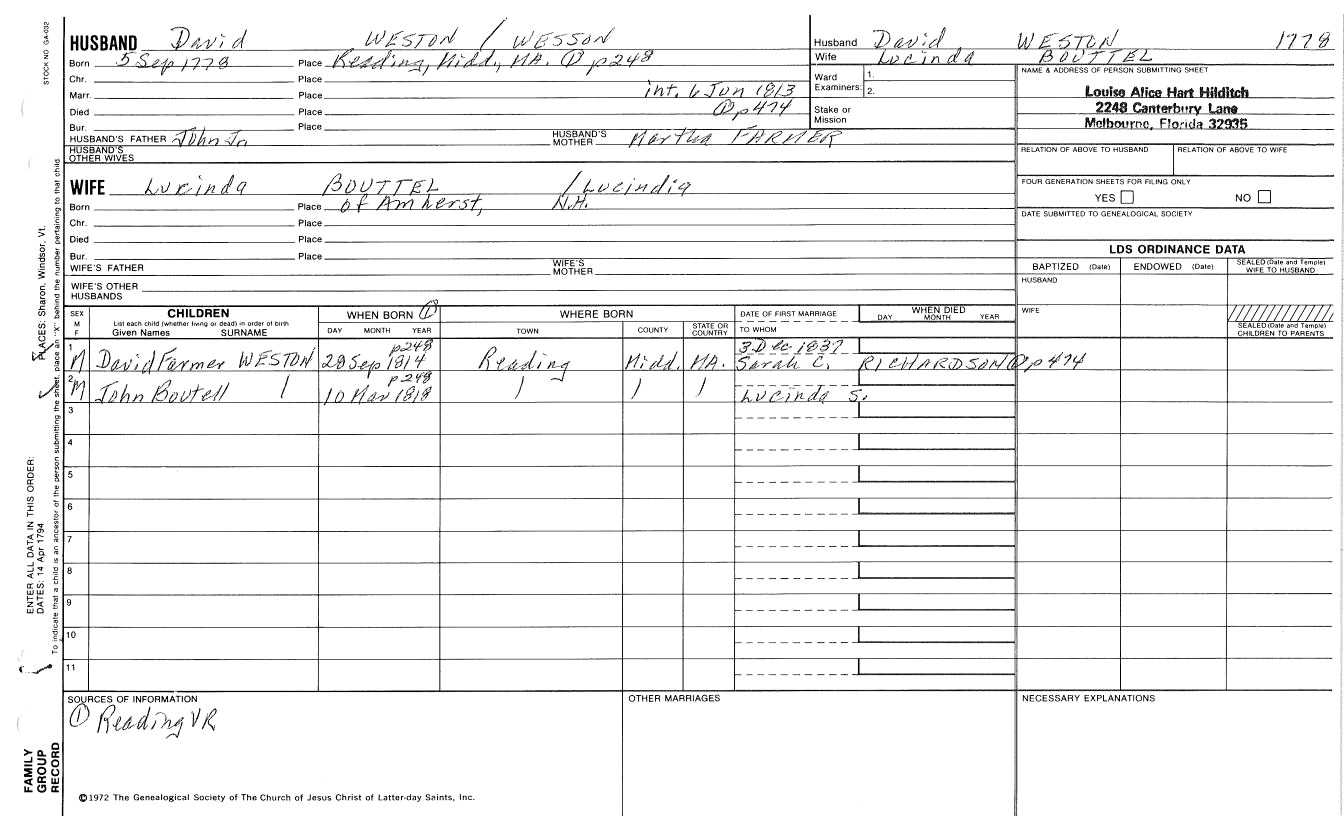 STOCK NO. GA-032
HUSBAND David WESTON / WESSON
Born 5 Sep 1778 Place Reading, Midd., MA. ① p248
Chr. Place
Marr. Place int. 6 Jun 1813
Died Place ① p474
Bur. Place
HUSBAND'S FATHER John Jr. HUSBAND'S MOTHER Martha FARMER
HUSBAND'S OTHER WIVES
WIFE Lucinda BOUTTEL / Lucindia
Born Place of Amherst, N.H.
Chr. Place
Died Place
Bur. Place
WIFE'S FATHER WIFE'S MOTHER
WIFE'S OTHER HUSBANDS
Husband David WESTON 1778
Wife Lucinda BOUTTEL
Ward Examiners: 1. 2.
Stake or Mission
NAME & ADDRESS OF PERSON SUBMITTING SHEET
Louise Alice Hart Hilditch
2248 Canterbury Lane
Melbourne, Florida 32935
RELATION OF ABOVE TO HUSBAND RELATION OF ABOVE TO WIFE
FOUR GENERATION SHEETS FOR FILING ONLY
YES NO
DATE SUBMITTED TO GENEALOGICAL SOCIETY
LDS ORDINANCE DATA
BAPTIZED (Date) ENDOWED (Date) SEALED (Date and Temple) WIFE TO HUSBAND
HUSBAND
WIFE
SEALED (Date and Temple) CHILDREN TO PARENTS
SEX M F
CHILDREN
List each child (whether living or dead) in order of birth
Given Names SURNAME
WHEN BORN ①
DAY MONTH YEAR
WHERE BORN
TOWN COUNTY STATE OR COUNTRY
DATE OF FIRST MARRIAGE
TO WHOM
WHEN DIED
DAY MONTH YEAR
p248 3 Dec 1837
1 M David Farmer WESTON 28 Sep 1814 Reading Midd. MA. Sarah C. RICHARDSON ① p474
p248
2 M John Boutell / 10 Mar 1818 / / / Lucinda S.
3
4
5
6
7
8
9
10
11
SOURCES OF INFORMATION
① Reading VR
OTHER MARRIAGES
NECESSARY EXPLANATIONS
©1972 The Genealogical Society of The Church of Jesus Christ of Latter-day Saints, Inc.
FAMILY GROUP RECORD
ENTER ALL DATA IN THIS ORDER:
DATES: 14 Apr 1794
PLACES: Sharon, Windsor, Vt.
To indicate that a child is an ancestor of the person submitting the sheet, place an "X" behind the number pertaining to that child